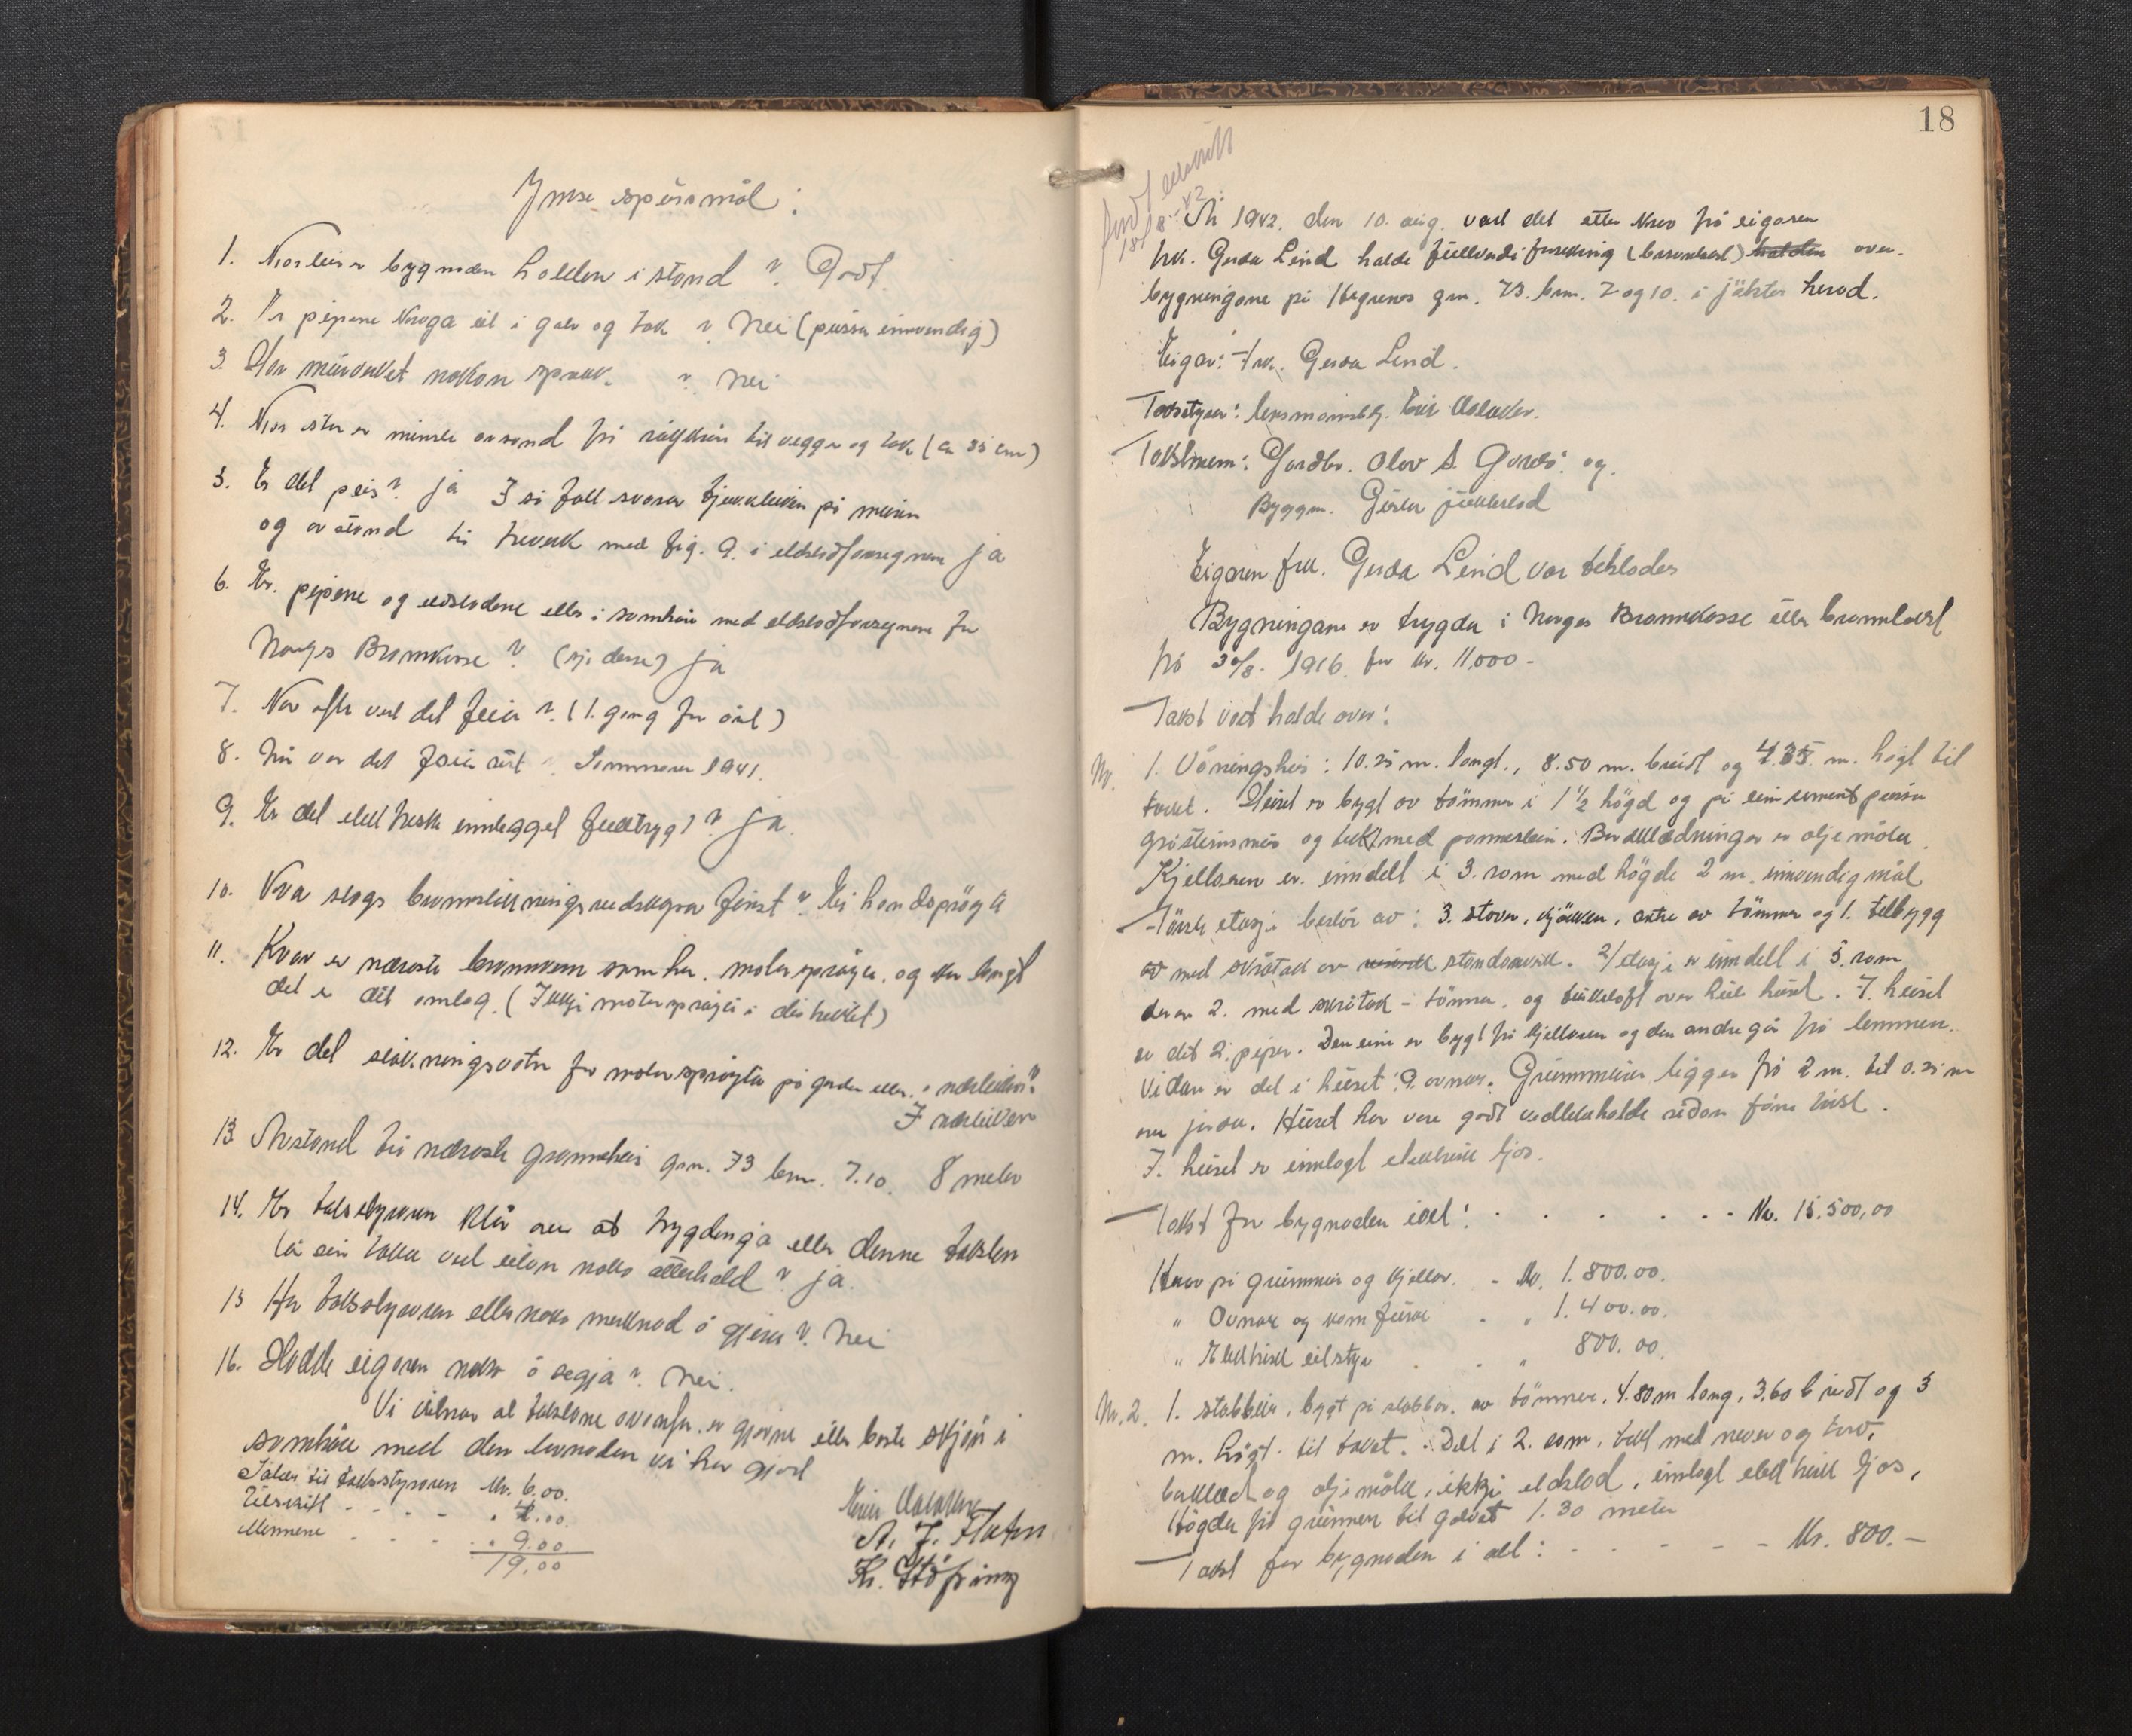 Ymse spörsmål:
1. Korleis er bygnaden halden i stand? Godt.
2. Er pipene kroga eil i golv og tak? Nei (pussa innvendig)
3. Har murverket nokon sprekk ? Nei
4. Kor stor er minste avstand frå röykrör til vegger og tak (ca 35 cm)
5. Er det peis? ja I så fall svarar tjukkleiken på muren
og avstand til treverk med fig. 9. i eldstadforsegnene ja
6. Er pipene og eldstadene elles i samhöve med eldstadforsegnene for
Norges Brannkasse? (sjå desse) ja
7. Kor ofte vert det feia? (1. gong for året)
8. Når var det feia sist? Sommaren 1941.
9. Er det elektriske innlegget fulltrygt? ja.
10. Kva slags brannslökningsreidskapar finst? Ei handspröyta
11. Kvar er næraste brannvern som har motorspröyta, og kor langt
det er dit omlag. (Ikkje motorspröyte i distriktet)
12. Er det slökningsvatn for motorspröyta på garden eller i nærleiken?
I nærleiken
13. Avstand til næraste grannehus gnr. 73 bnr. 7.10. 8 meter
14. Er takststyraren klår over at trygdinga etter denne taksten
lå seg taka ved utan noko atterhald? ja.
15 Har takststyraren elles noko merknad å gjera? Nei
16. Hadde eigaren noko å segja? Nei.
Vi vitnar at takstane ovanfor er gjevne etter beste skjön i
samhöve med den lovnaden vi har gjort
Salær til takststyraren Kr. 6.00.
Utskrift - - - - " 4.00.
Mennene - - - " 9.00
19.00
A. J. Flaten
Kr. Stöfring
18
År 1942. den 10. aug. vart det etter krav frå eigaren
frk. Gerda Lind halde fullverdi forretning (branntakst) halden over
bygningane på gnr. 73. bnr. 7 og 10. i Jölster herad.
Eigar: Frk. Gerda Lind.
Takststyrar: lensmannsbtj.
Takstmenn: Gardbr. Olav S. og
Byggm.
Eigaren frk. Gerda Lind var tilstades
Bygningane er trygda i Norges Brannkasse etter branntakst
frå 30/8. 1916. for kr. 11,000-
Takst vart halde over:
Nr. 1. Våningshus: 10.25 m. langt., 8.50 m. breidt og 4.35 m. högt til
taket. Huset er bygt av tömmer i 1 1/2 högd og på ein sement pussa
gråsteinsmur og tekt med pannestein. Bordklædningen er oljemåla.
Kjellaren er inndelt i 3. rom med högde 2 m. innvendig mål
Förste etasje består av: 3. stover, kjökken, entre av tömmer og 1. tilbygg
med skråtak av standarverk. 2/ etasje er inndelt i 5. rom
der er 2. med skråtak - tömmer og tiukeloft over heile huset. I huset
er det 2. piper. Den eine er bygt frå kjellaren og den andre går frå lemmen.
Vidare er det i huset: 9. ovnar. Grunnmuren ligger frå 2 m. til 0.25 m
over jorda. Huset har vore godt vedlikehalde sidan förre takst.
I. huset er innlagt elektrisk ljos.
Takst for bygnaden ialt: - - - - - Kr. 15.500,00
Herav på grunnmur og kjellar - Kr. 1.800.00.
" Ovnar og komfurar - " 1.400.00.
" Elektrisk utstyr - - " 800.00.
Nr. 2. 1. stabbur, bygt på stabbar, av tömmer, 4.80 m lang, 3.60 breidt og 3
m. högt til taket. Delt i 2. rom, tekt med never og torv,
bukled og oljemåla, ikkje eldstad, innlagt elektrisk ljos,
Högda frå grunnen til golvet 1.30 meter
Takst for bygnaden i alt: - - - - - Kr. 800.-